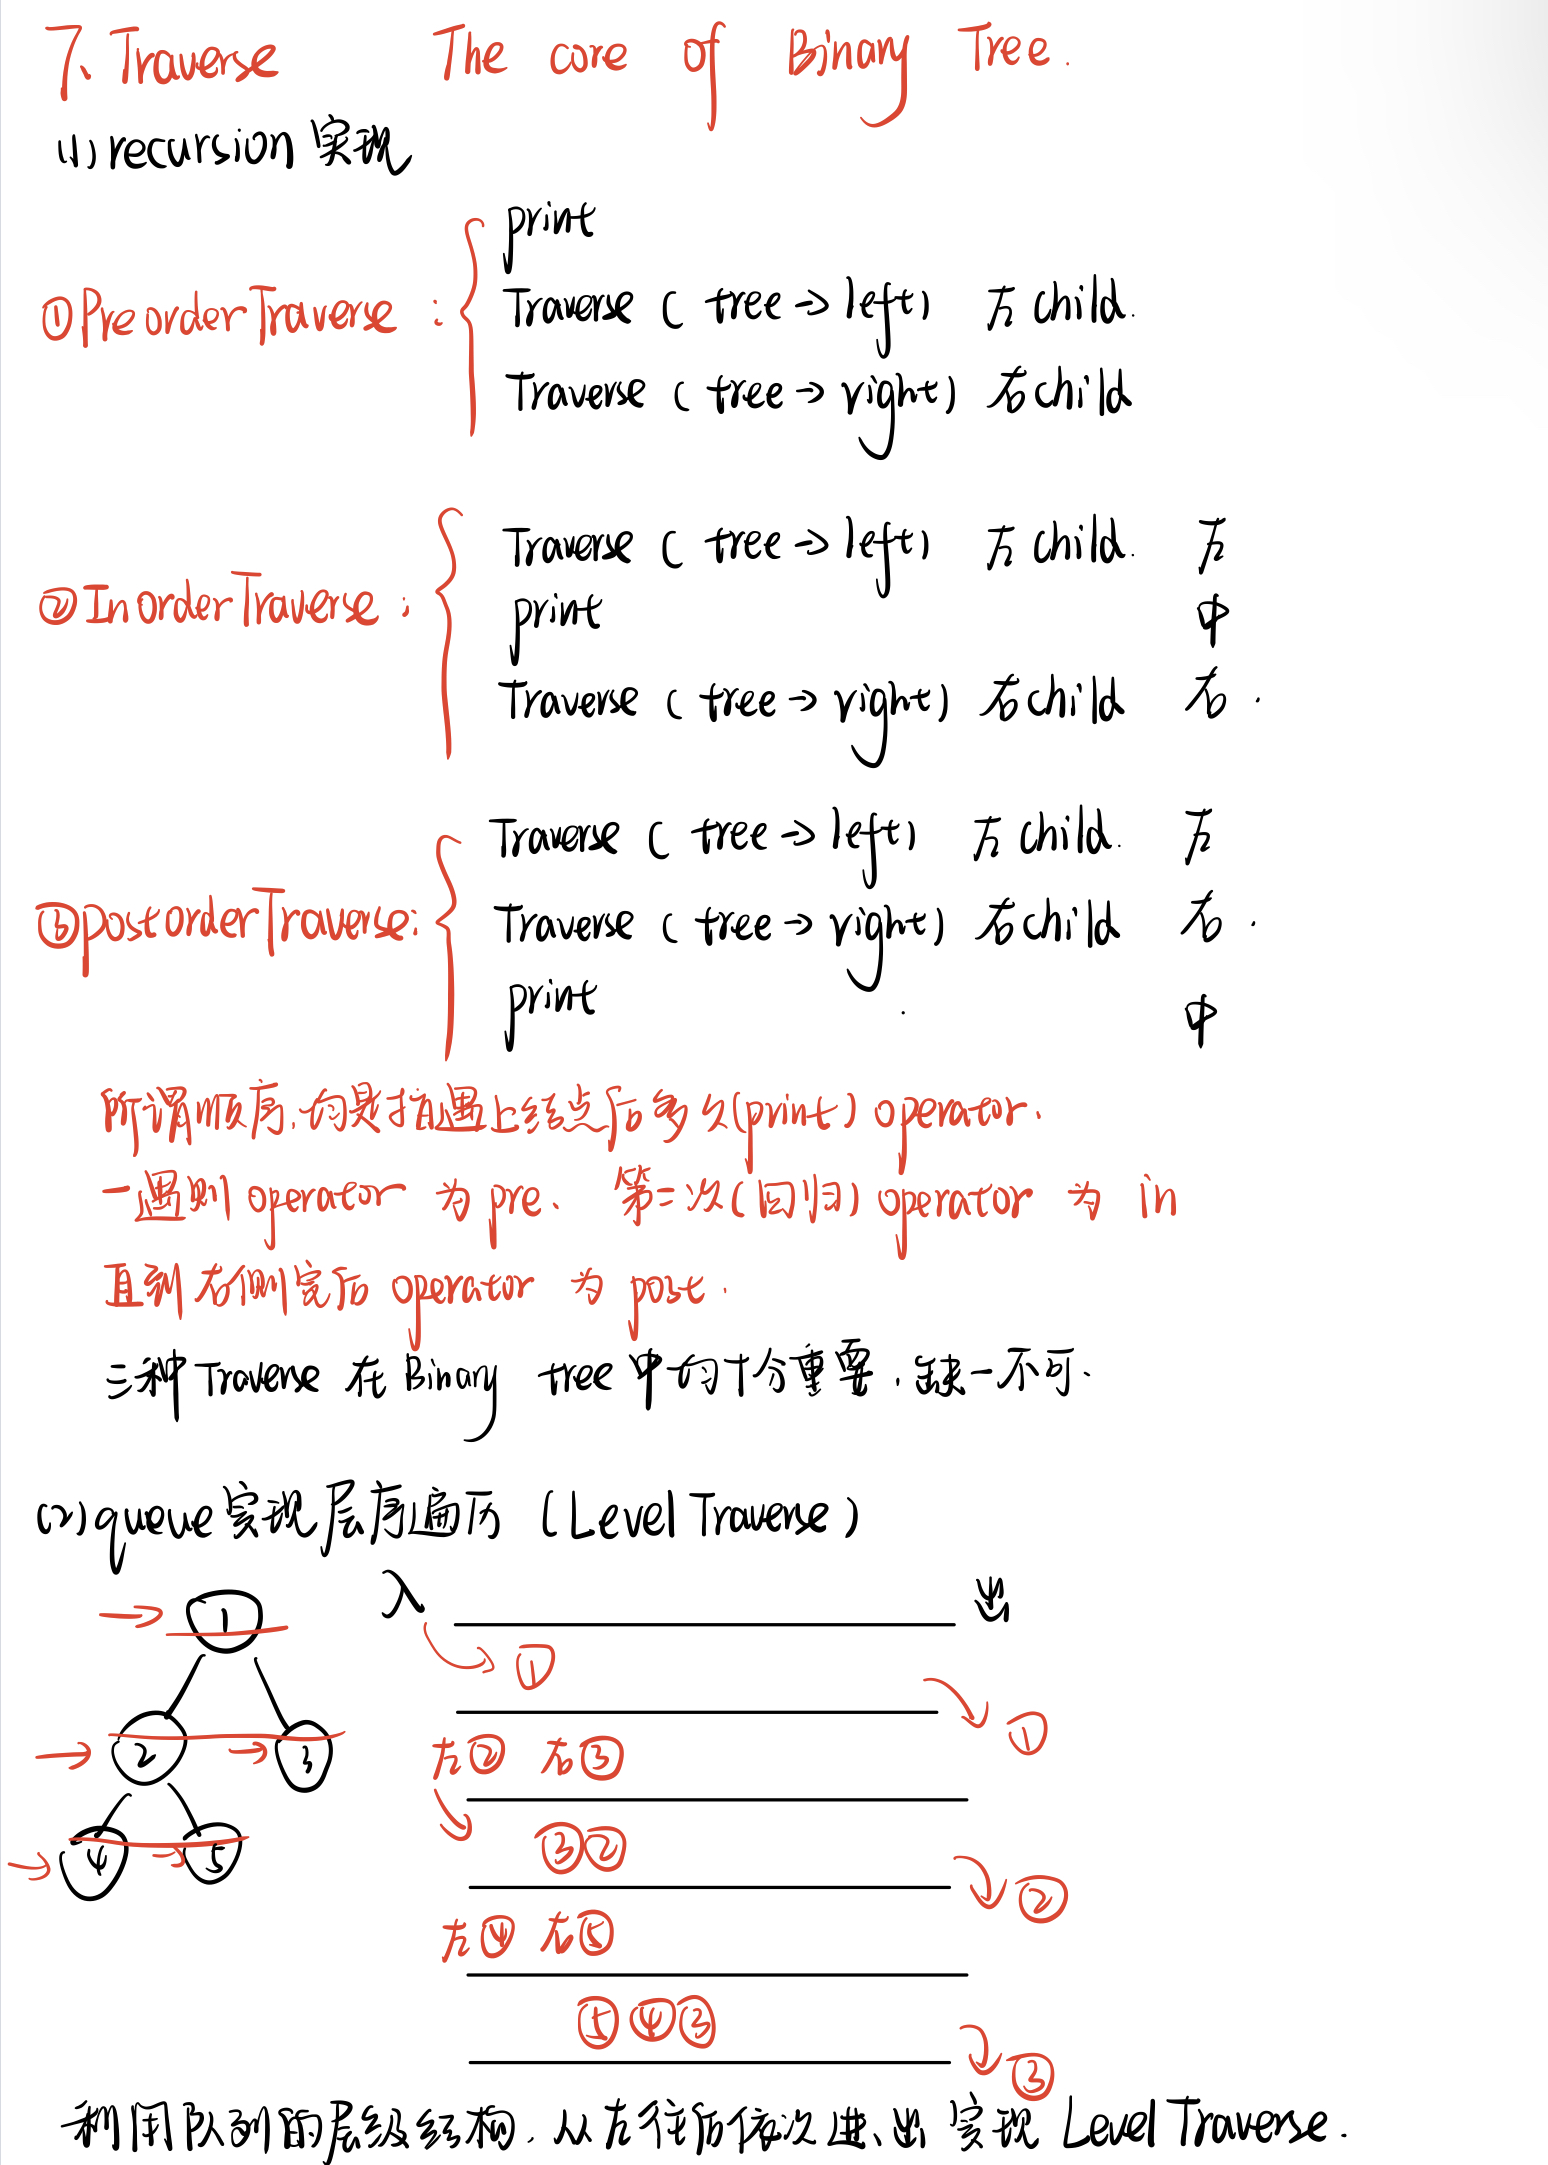 7、Traverse The core of Binary Tree.
(1) recursion 实现
①PreorderTraverse :
print
Traverse ( tree → left) 左 child.
Traverse ( tree → right) 右 child
②InorderTraverse :
Traverse ( tree → left) 左 child. 左
print 中
Traverse ( tree → right) 右 child 右 .
③postorderTraverse:
Traverse ( tree → left) 左 child. 左
Traverse ( tree → right) 右 child 右 .
print 中
所谓顺序,均是指遇上结点后多久(print) operator.
一遇则 operator 为 pre、 第二次(回归) operator 为 in
直到右侧完后 operator 为 post .
三种 Traverse 在 Binary tree 中均十分重要,缺一不可、
(2) queue 实现层序遍历 (Level Traverse)
入 出
1
①
①
2 3
左② 右③
③②
②
4 5
左④ 右⑤
⑤④③
③
利用队列的层级结构,从左往后依次进、出 实现 Level Traverse .